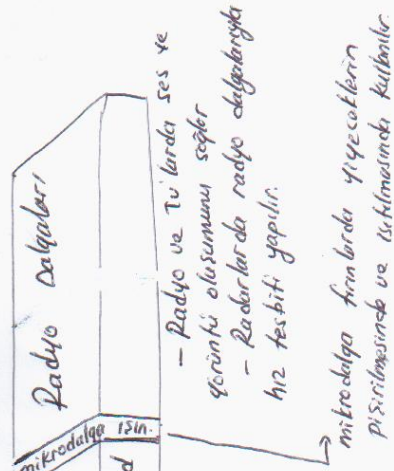 Radyo Dalgaları
mikrodalga ışın.
d
- Radyo ve Tv'larda ses ve
görüntü oluşumunu sağlar
- Radarlarda radyo dalgalarıyla
hız tesbiti yapılır.
mikrodalga fırınlarda yiyeceklerin
pişirilmesinde ve ısıtılmasında kullanılır.